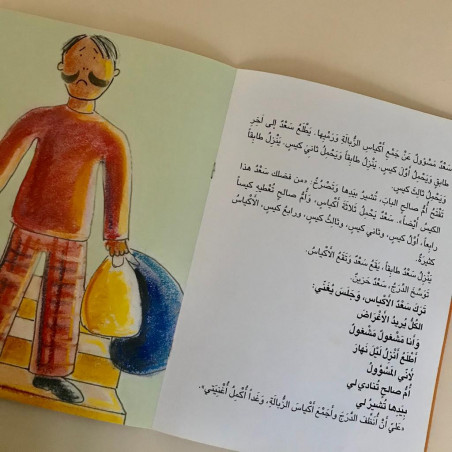 سَعْدٌ مَسْؤُولٌ عَنْ جَمْعِ أَكْيَاسِ الزُّبَالَةِ وَرَمْيِها. يَطْلَعُ سَعْدٌ إلى آخِرِ
طابِقٍ وَيَحْمِلُ أَوَّلَ كيسٍ. يَنْزِلُ طابِقاً وَيَحْمِلُ ثانيَ كيسٍ. يَنْزِلُ طابِقاً
وَيَحْمِلُ ثالِثَ كيسٍ.
تَفْتَحُ أُمُّ صالِحٍ البابَ، تُشيرُ بِيَدِها وَتَصْرُخُ: «من فضلك سَعْدُ هذا
الكيسُ أَيْضاً». سَعْدٌ يَحْمِلُ ثَلاثَةَ أَكْياسٍ، وَأُمُّ صالِحٍ تُعْطيهِ كيساً
رابِعاً. أَوَّلُ كيسٍ، وثاني كيسٍ، وثالِثُ كيسٍ، ورابعُ كيسٍ. الأَكْياسُ
كثيرَةٌ.
يَنْزِلُ سَعْدٌ طابِقاً، يَقَعُ سَعْدٌ وَتَقَعُ الأَكْياسُ.
تَوَسَّخَ الدَّرَجُ، سَعْدٌ حَزينٌ.
تَرَكَ سَعْدٌ الأَكْياسَ، وَجَلَسَ يُغَنّي:
الكُلُّ يُريدُ الأَغْراضْ
وَأَنا مَشْغولٌ مَشْغولْ
أَطْلَعُ أَنْزِلُ لَيْلَ نَهارَ
لأَنّي المَسْؤُولُ
أُمُّ صالِحٍ تُنادي لي
بِيَدِها تُشيرُ لي
«عَلَيَّ أَنْ أُنَظِّفَ الدَّرَجَ وأَجْمَعَ أَكْياسَ الزُّبالَةِ، وَغَداً أُكْمِلُ أُغْنِيَتي».